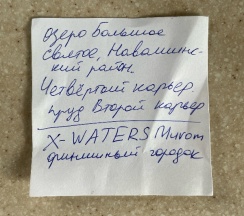 озеро Большое
Святое, Навашинс-
кий район.
Четвёртый карьер.
пруд Второй карьер
X-WATERS
финишный городок